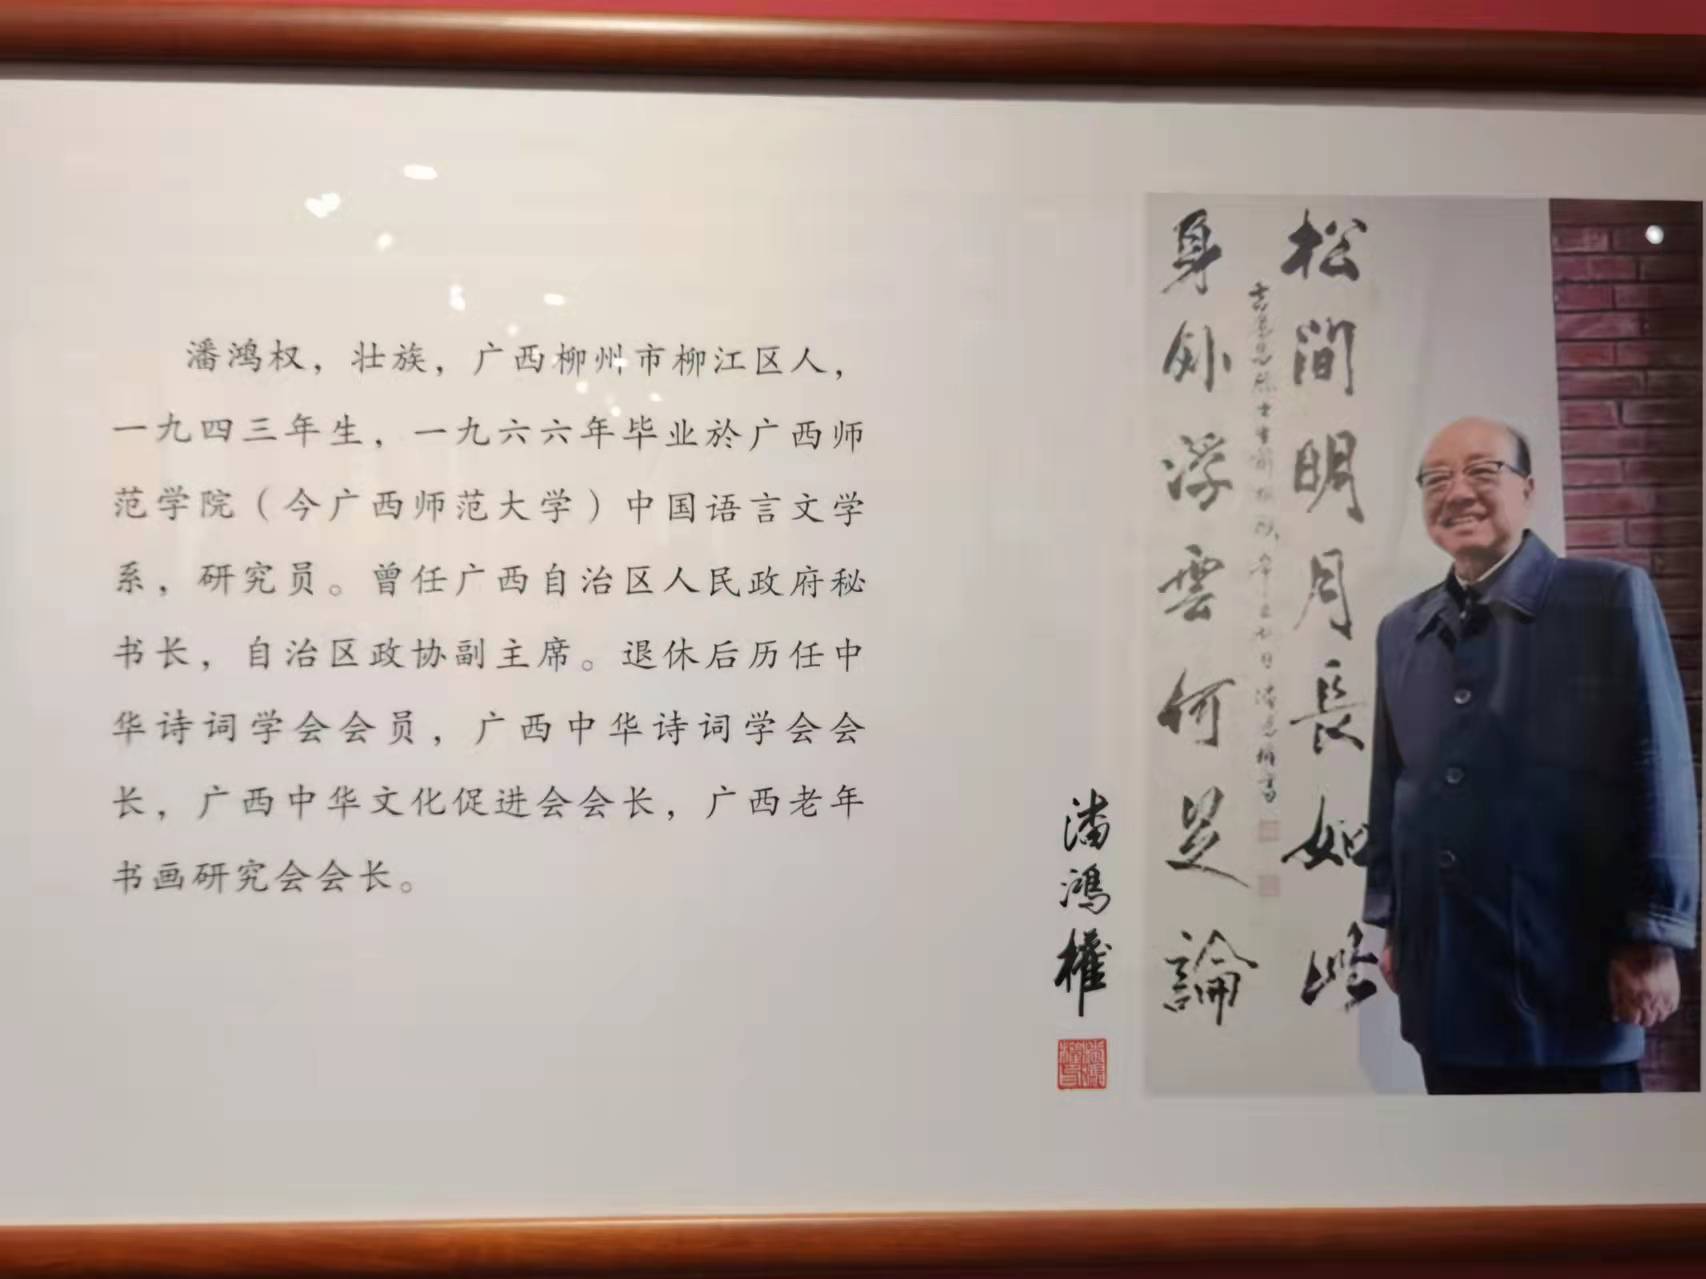 潘鸿权，壮族，广西柳州市柳江区人，
一九四三年生，一九六六年毕业於广西师
范学院（今广西师范大学）中国语言文学
系，研究员。曾任广西自治区人民政府秘
书长，自治区政协副主席。退休后历任中
华诗词学会会员，广西中华诗词学会会
长，广西中华文化促进会会长，广西老年
书画研究会会长。
潘鸿權
松間明月長如此
身外浮雲何足論